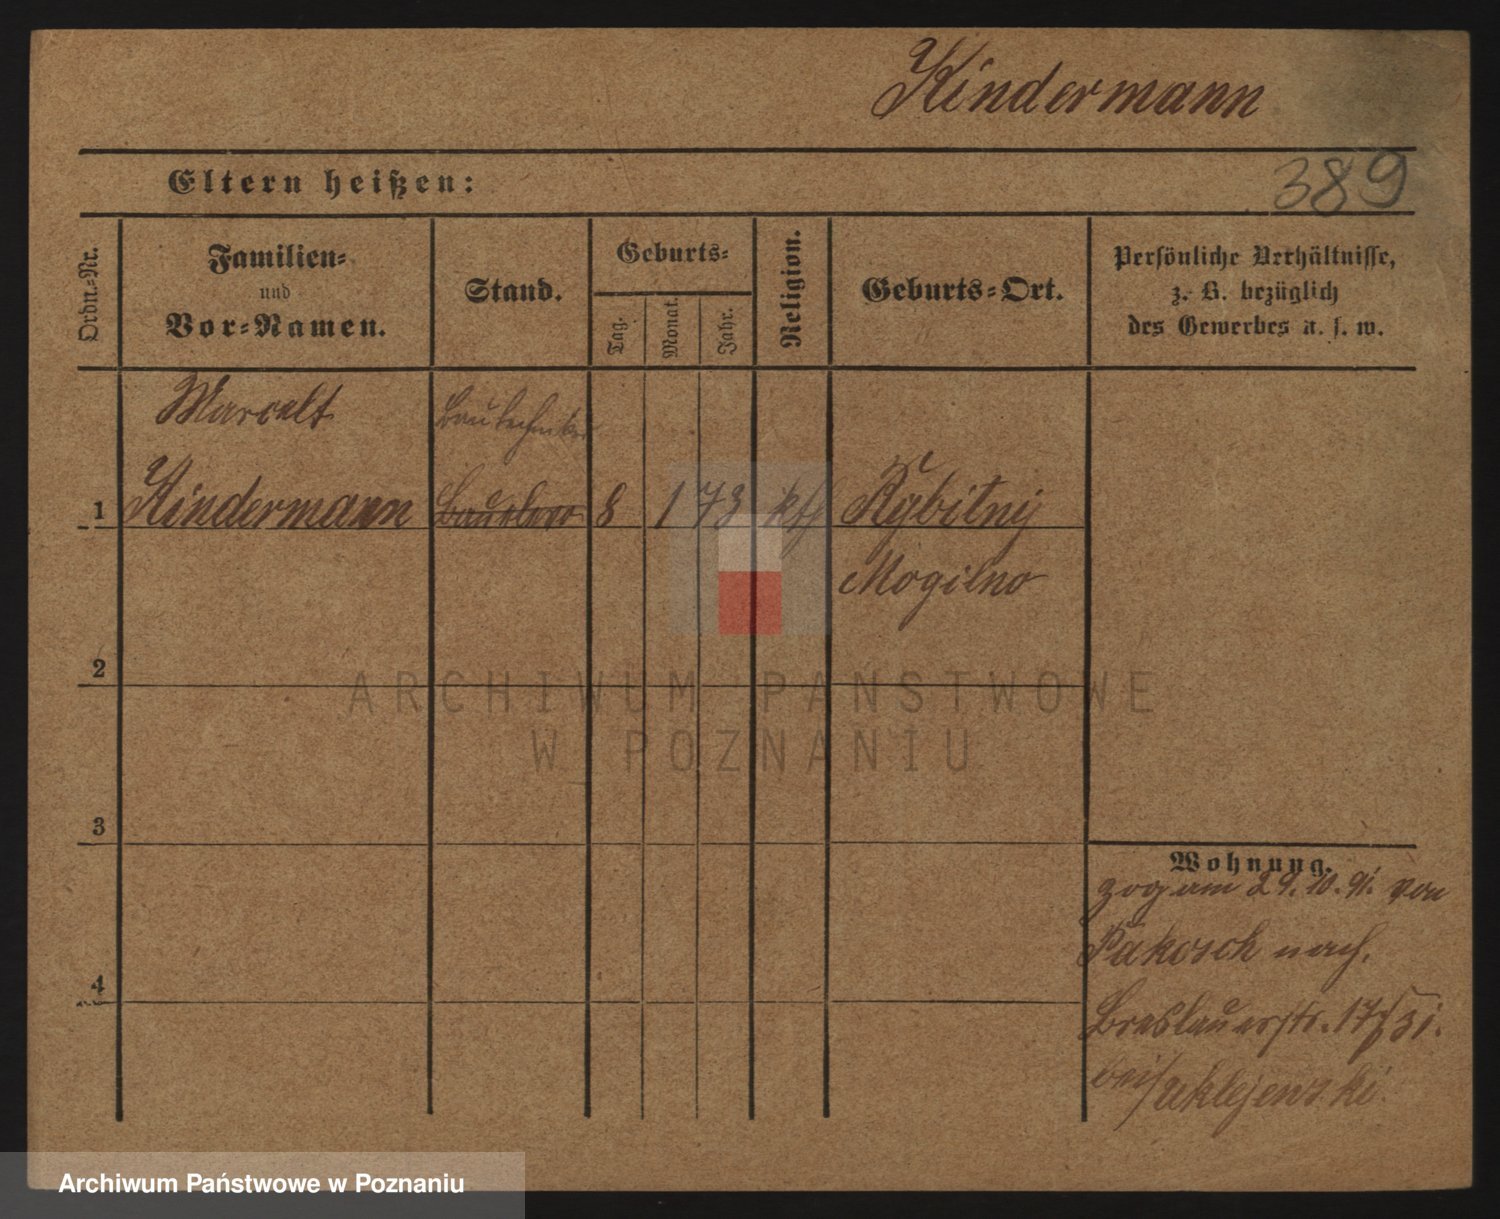 Kindermann
Eltern heißen:
389
Ordn.-Nr.
Familien-
und
Vor-Namen.
Stand.
Geburts-
Tag.
Monat.
Jahr.
Religion.
Geburts-Ort.
Persönliche Verhältnisse,
z. B. bezüglich
des Gewerbes u. s. w.
Marcelt
Bautechniker
1 Kindermann 8 1 73 kth Rybitny
Mogilno
2
ARCHIWUM PAŃSTWOWE
W POZNANIU
3
Wohnung.
zog am 29. 10. 91. von
Pakosch nach
Breslauerstr. 17/31.
bei
4
Archiwum Państwowe w Poznaniu